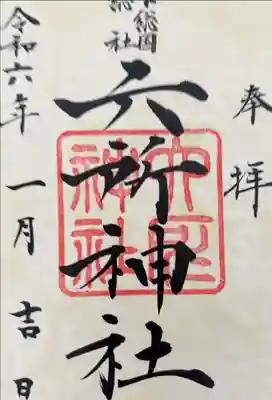 奉拝
下総国
総社
六所神社
六所
神社
令和六年
一月吉日